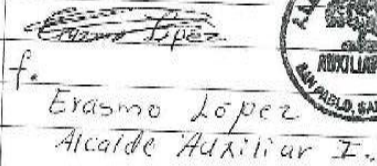 Erasmo López
f.
Erasmo López
Alcalde Auxiliar I.
AUXILIAR
SAN PABLO, SA